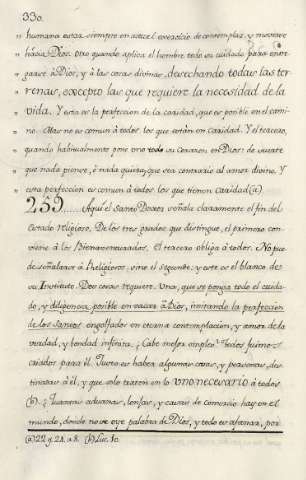 330.
„ humano estar siempre en actual exercicio de contemplar, y moverse
„ hácia Dios. otro quando aplica el hombre todo su cuidado para entre
„ garse à Dios, y à las cosas divinas, desechando todas las ter
„ renas, excepto las que requiere la necesidad de la
„ vida. Y esta es la perfeccion de la caridad, que es posible en el cami-
„ no. Mas no es comun à todos los que están en Caridad. Y el tercero,
„ quando habitualmente pone uno todo su Corazon en Dios: de suerte
„ que nada piense, ò nada quiera, que sea contrario al amor divino. Y
„ esta perfeccion es comun à todos los que tienen Caridad (a)
259 Aqui el Santo Doctor señala claramente el fin del
Estado religioso. De los tres grados que distingue, el primero con-
viene à los Bienaventurados. El tercero obliga à todos. No pue-
de señalarse à Religiosos, sino el segundo: y este es el blanco de
su Instituto. Dios cosas requiere. Una, que se ponga todo el cuida-
do, y diligencia posible en vacar à Dios, imitando la perfeccion
de los Santos engolfados en eterna contemplacion, y amor de la
verdad, y bondad infinita. ¿Cabe mejor empleo? Todos fuimos
criados para èl. Justo es haber algunas casas, y personas, des-
tinadas à èl, y que solo traten en lo uno necesario à todos
(b). ¿Quantas aduanas, lonjas, y casas de comercio hay en el
mundo, donde no se oye palabra de Dios, y todo es afanar, por
(a) 22. q. 24. a. 8. (b) Luc. 10.